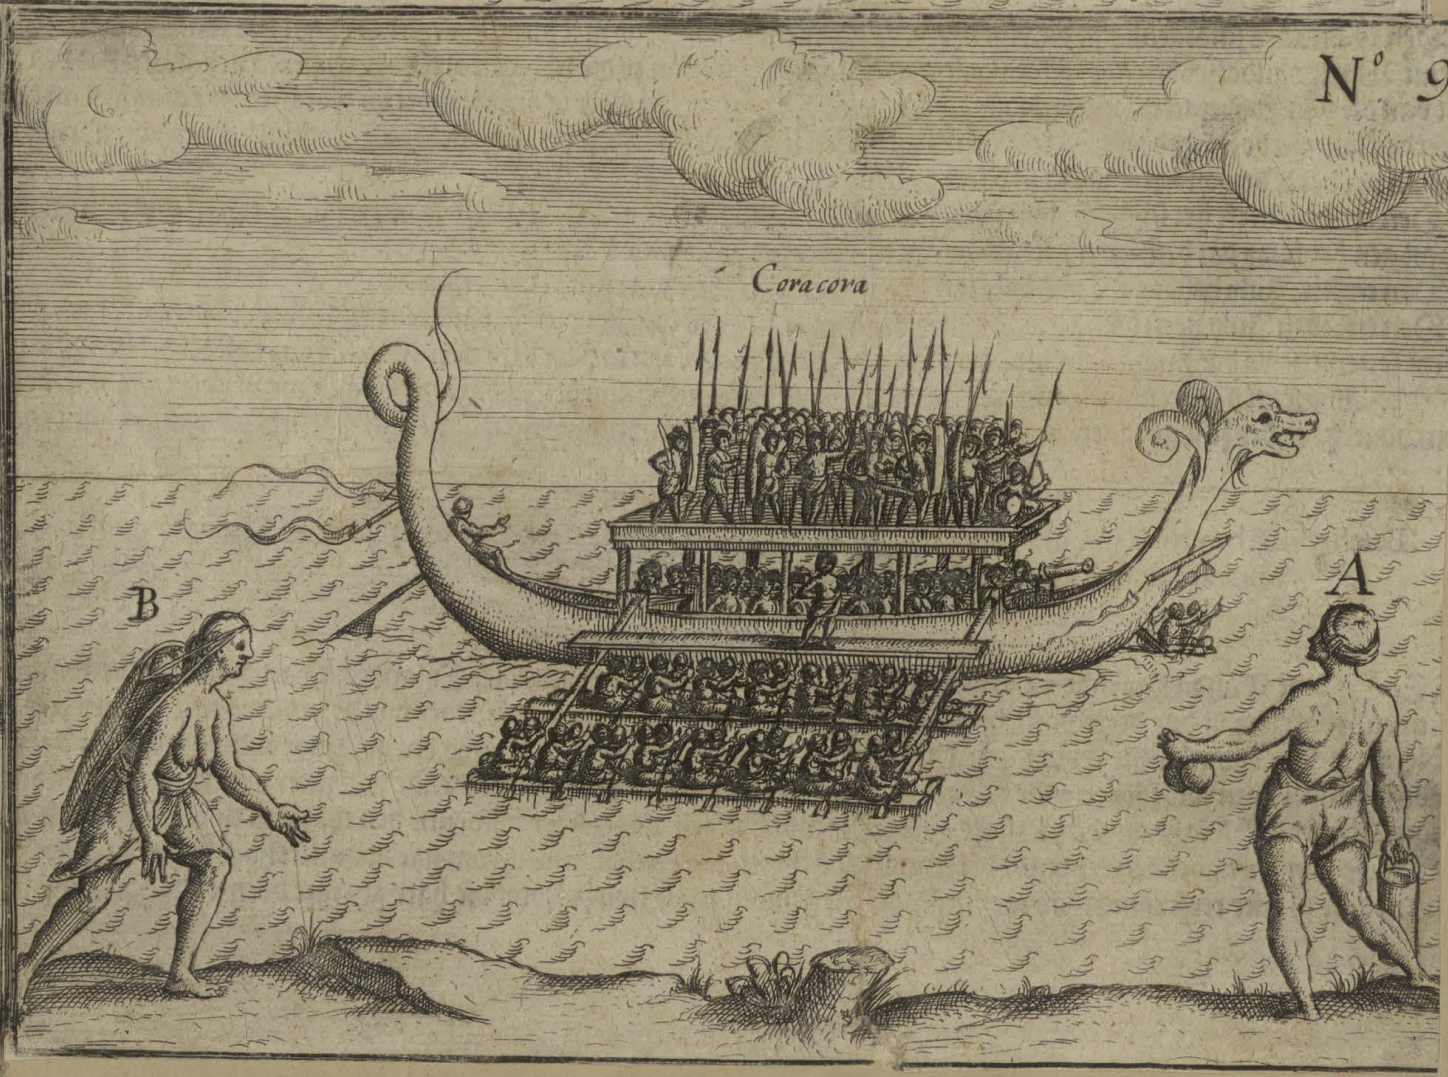 Nº 9
Coracora
B
A